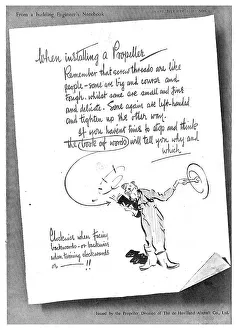 From a budding Engineer's Notebook
When installing a Propeller
Remember that screw threads are like
people - some are big and coarse and
tough, whilst some are small and fine
and delicate. Some again are left-handed
and tighten up the other way.
If you havent time to stop and think
the (book of words) will tell you why and
which
Clockwise when facing
backwards - or backwards
when turning clockwards
or !!
Issued by the Propeller Division of The de Havilland Aircraft Co., Ltd.